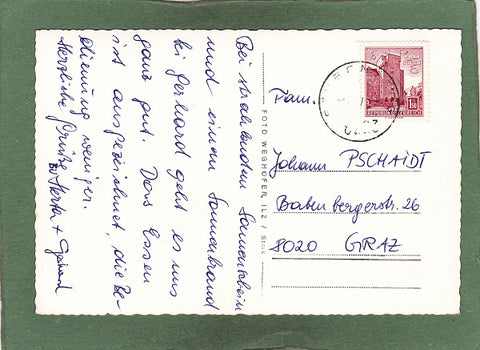 Bei strahlendem Sonnenschein
und einem Sonnenbrand
bei Gerhard geht es uns
ganz gut. Das Essen
ist ausgezeichnet, die Be-
dienung weniger.
Herzliche Grüße
Herta + Gerhard
FOTO WEGHOFER, ILZ / Stmk
REPUBLIK ÖSTERREICH
Fam.
Johann PSCHAIDT
Batenbergerstr. 26
8020 GRAZ